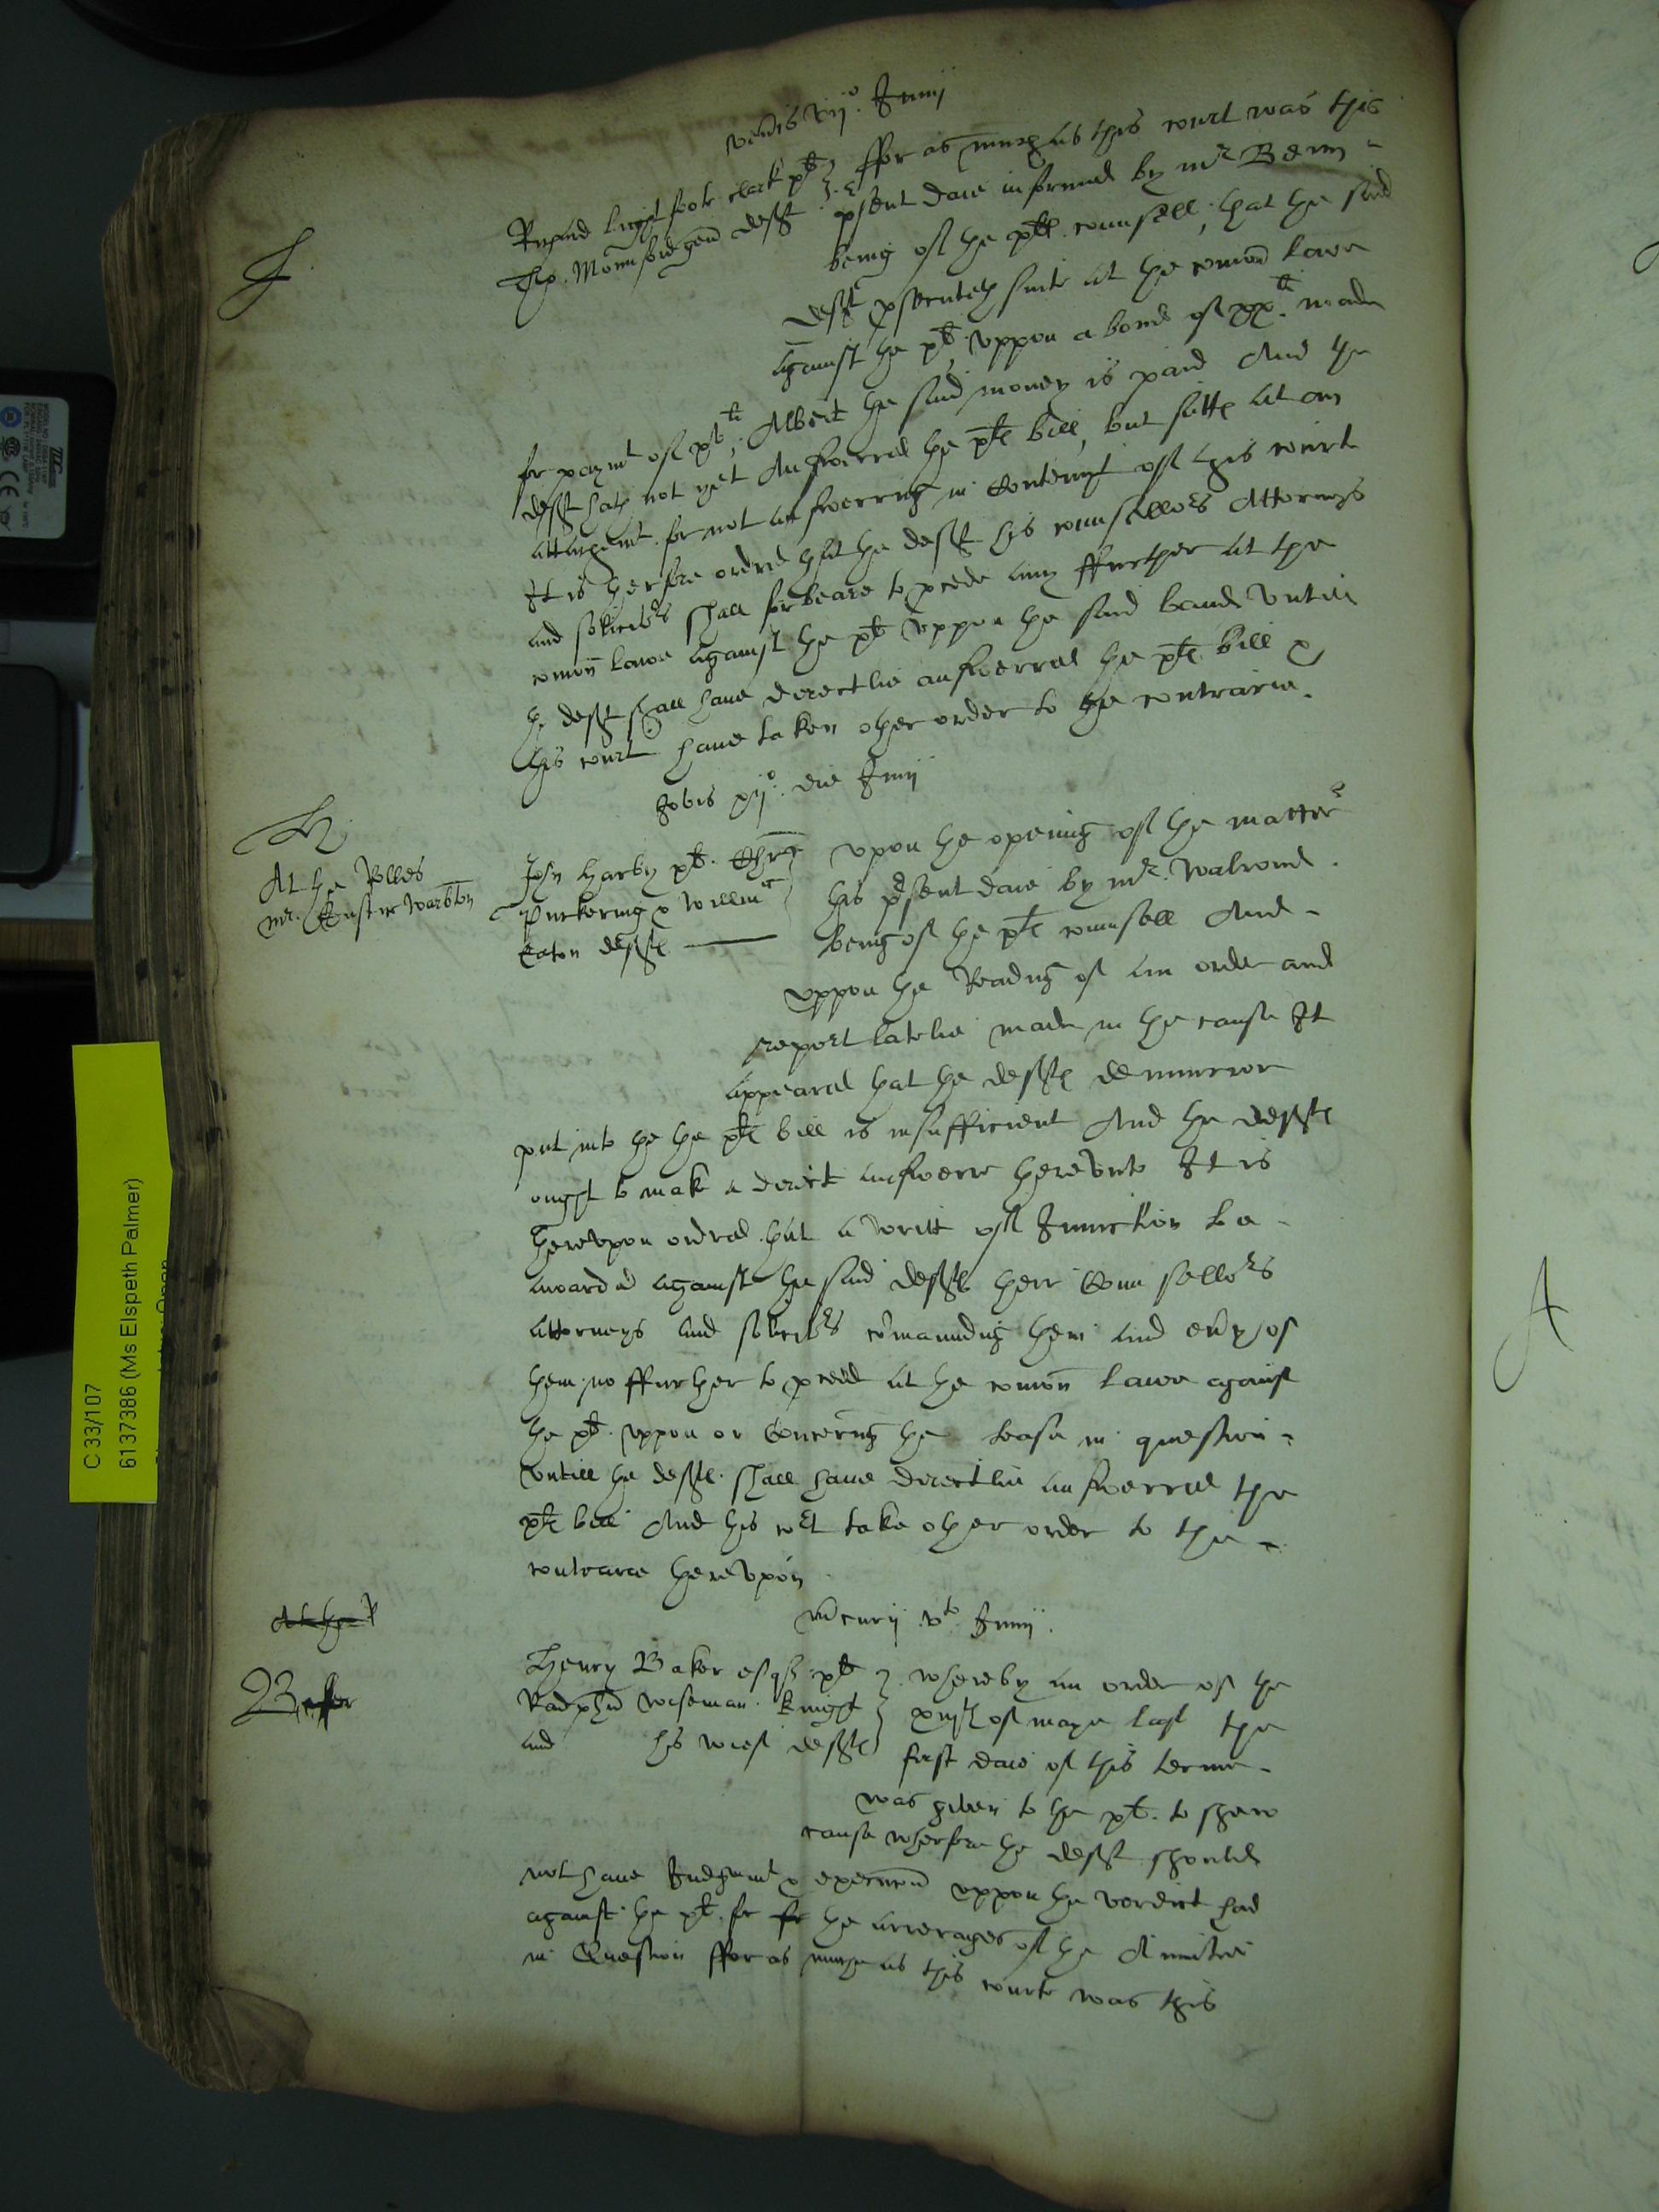 ven̄is vij° Junij
Richard Lightfoote clark plt
Tho. Momford gen̄ deft
ffor as much as this court was this
p̱sent daie informed by mr Benn
being of the plts counsell, that the said
deft p̱secuteth suite at the com̄on lawe
against the plt uppon a bond of xxli made
for paymt of xli, Albeit the said money is paid And the
deft hath not yet Answerred the plts bill, but sitts at an
attachmt for not answerring in Contempt of this court
It is therfore ordred that the deft his counsellors Attorneys
and solicitors shall forbeare to p̱cede any ffurther at the
com̄on lawe against the plt uppon the said band untill
the deft shall haue directlie answerred the plts bill &
this court haue taken other order to the contrarie.
Jovis xij° die Junij
H
At the Rolles
mr Justice Warbton
John Harby plt Chr̄
Puckering & Willm̄
Eaton defts
upon the opening of the matter
this p̱sent daie by mr Walrond
being of the plts counsell And
uppon the Reading of an order and
report latelie made in the cause It
appeared that the defts demurrer
put into the the plts bill is insufficient And the defts
ought to make a direct answere therevnto It is
therevpon ordred that a writt of Iniunction be
awarded against the said defts their Counsellors
attorneys and solicitors com̄aunding them and eūy of
them no ffurther to p̱ceed at the com̄on lawe against
the plt uppon or Concerning the lease in question
untill the defts shall haue directlie answerred the
plts bill And this cort take other order to the
contrarie therevpon
Mercurij vto Junij
At the R
B
Henry Baker esqr plt
Radphū Wiseman knight
and his wief defts
whereby an order of the
xiijth of maye last the
first daie of this terme
was given to the plt to shew
cause wherfore the deft should
not haue Iudgmt & execucon̄ uppon the verdict had
against the plt for for the arrerages of the Annuitie
in Question ffor as much as this courte was this
A
C 33/107
6137386 (Ms Elspeth Palmer)